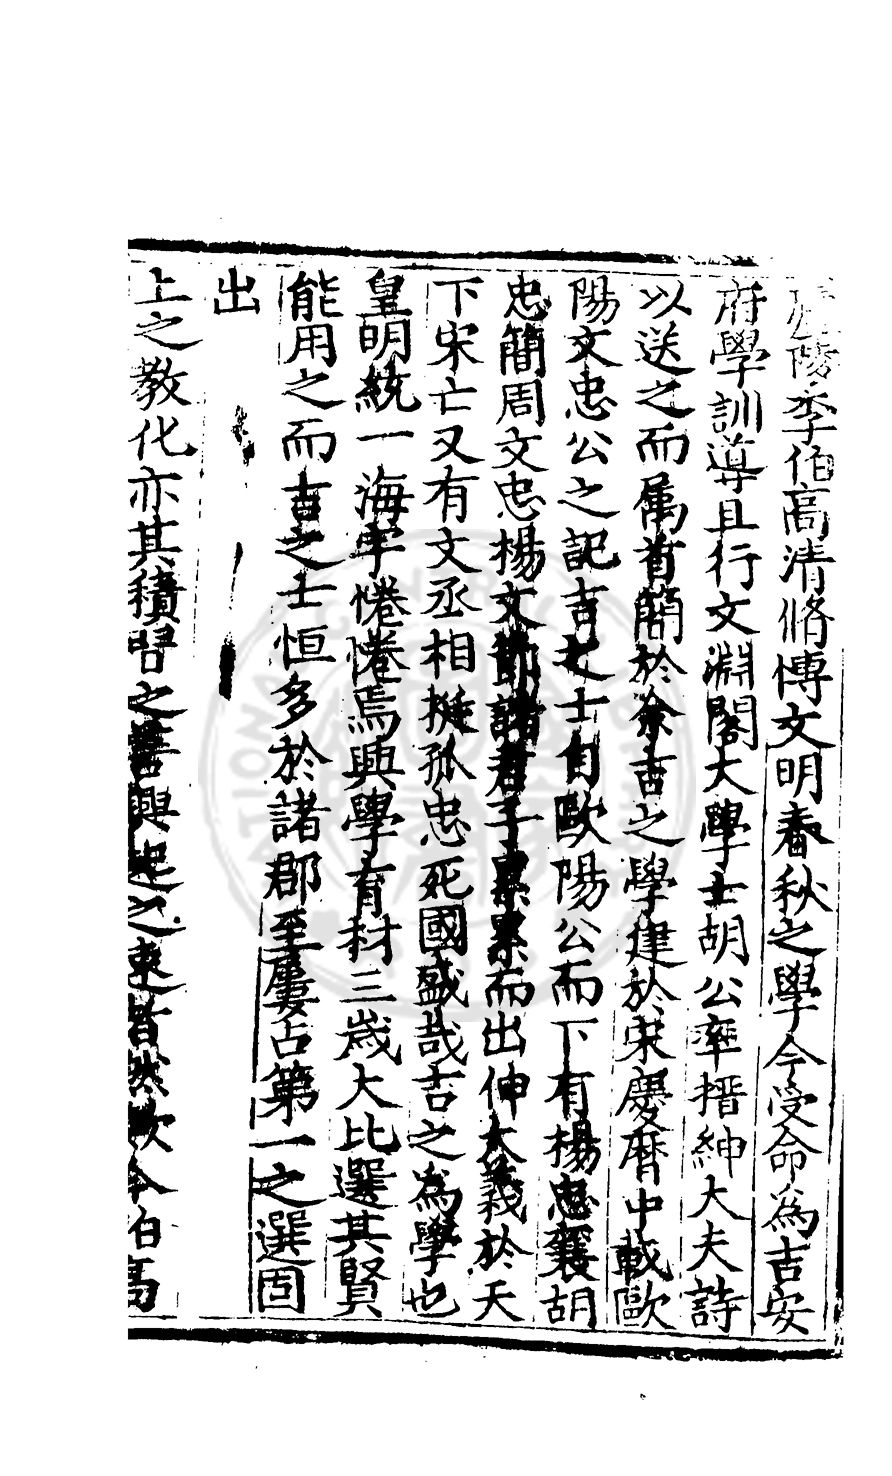 陵李伯高清脩博文明春秋之學今受命為吉安
府學訓導且行文淵閣大學士胡公率搢紳大夫詩
以送之而属首簡於余吉之學建於宋慶曆中載歐
陽文忠公之記吉之士自歐陽公而下有楊忠襄胡
忠簡周文忠楊文節諸君子累累而出伸大義於天
下宋亡又有文丞相挺孤忠死國盛哉吉之為學也
皇明統一海宇惓惓焉興學育材三歲大比選其賢
能用之而吉之士恒多於諸郡至屢占第一之選固
出
上之教化亦其積習之善興起之速皆然歟今伯高